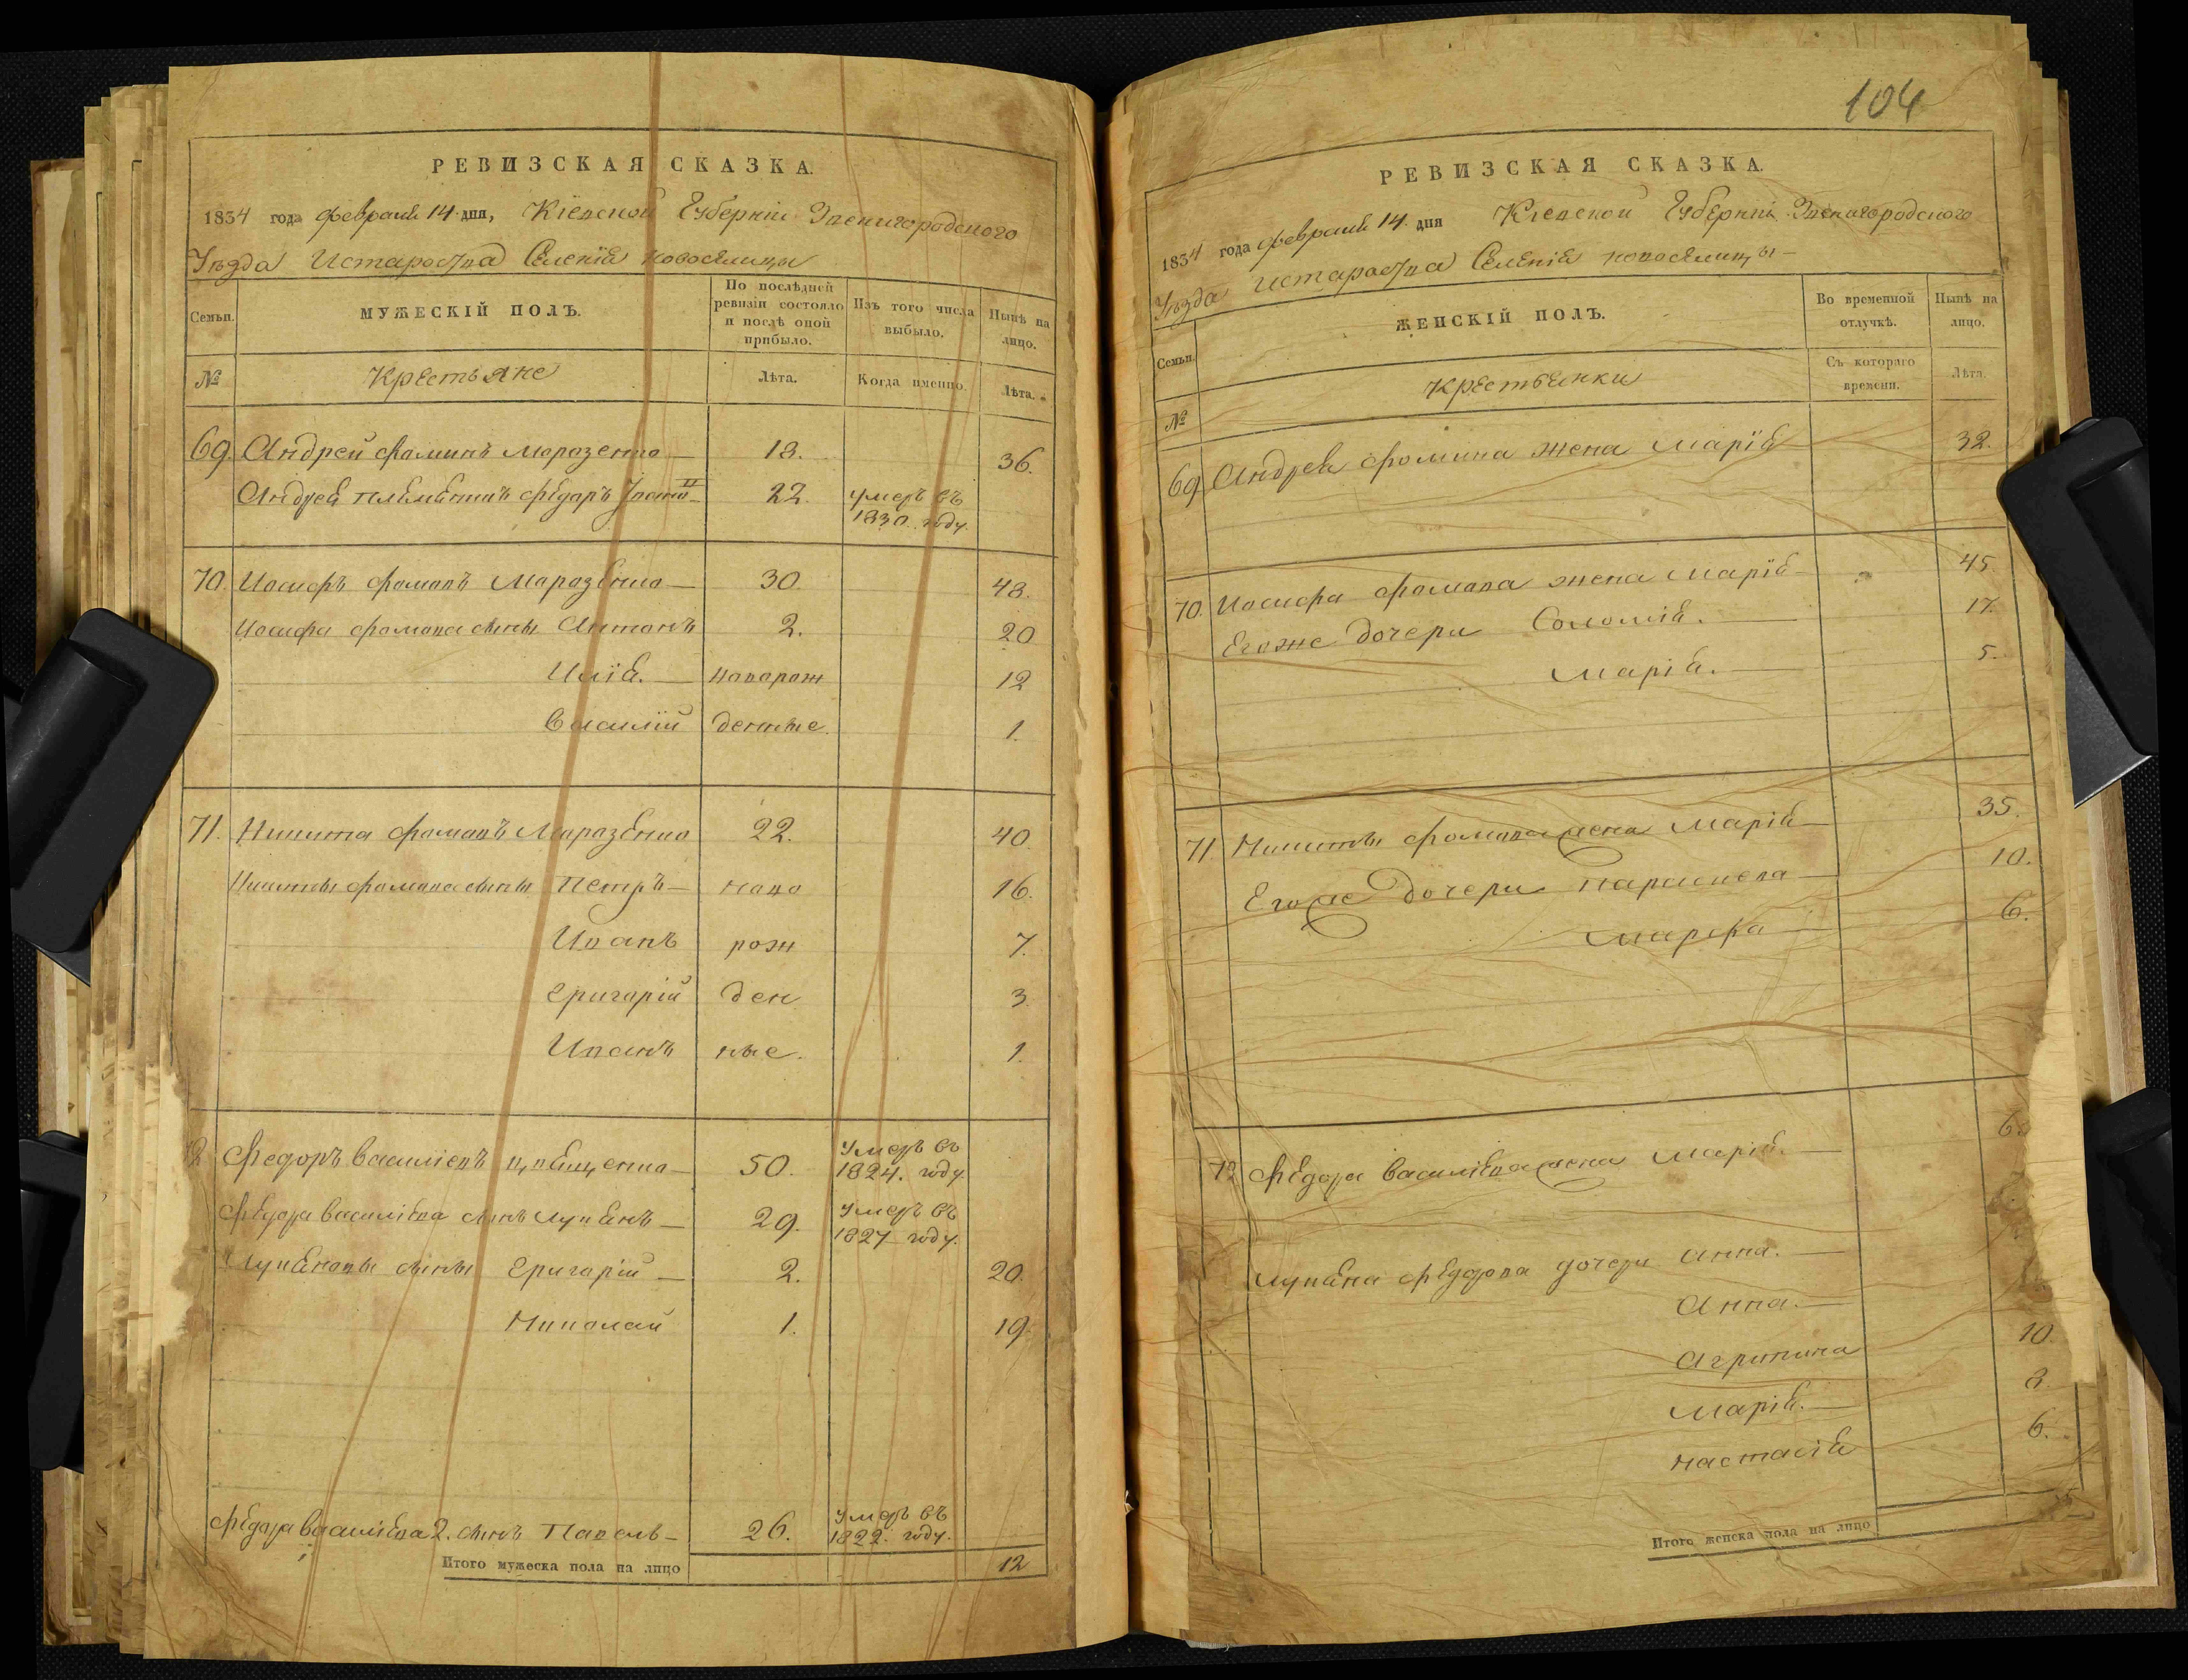 РЕВИЗСКАЯ СКАЗКА.
1834 года февраля 14 дня, Кіевской Губерніи Звенигородского
Уѣзда Истароства Селенія Новоселицы
Семьи.
МУЖЕСКІЙ ПОЛЪ.
По послѣдней ревизіи состояло и послѣ оной прибыло.
Изъ того числа выбыло.
Нынѣ на лицо.
№ Крестьяне Лѣта. Когда именно. Лѣта.
69. Андрей Фоминъ Морозенко 18. 36.
Андрея племеникъ Федоръ 22. умеръ въ 1830 году.
70. Иосифъ Фомовъ Марозенко 30. 48.
Иосифа Фомова сыны Антонъ 2. 20
Илія. новорож 12
Василій денные. 1.
71. Никита Фомовъ Марозенко 22. 40
Никиты Фомова сыны Петръ ново 16.
Иванъ рож 7.
Григорій ден 3.
Иванъ ные. 1.
Федоръ Василіевъ 50. Умеръ въ 1824. году
Федора Василіева сынъ Лукіянъ 29. Умеръ въ 1827 году.
Лукіяновы сыны Григорій 2. 20.
Николай 1. 19.
Федора Василіева 2. сынъ Павелъ 26. Умеръ въ 1822. году.
Итого мужеска пола на лицо 12
104
РЕВИЗСКАЯ СКАЗКА.
1834 года февраля 14. дня Кіевской Губерніи Звенигородского
Уѣзда Истароства Селенія Новоселицы
Семьи.
ЖЕНСКІЙ ПОЛЪ.
Во временной отлучкѣ.
Нынѣ на лицо.
№ Крестьянки Съ котораго времени. Лѣта.
69 Андрея Фомина жена Марія 32.
70. Иосифа Фомова жена Марія 45.
Егоже дочери Соломія. 17.
Марія. 5.
71 Никиты Фомова жена Марія 35.
Егоже дочери Параскева 10.
Марфа 6.
72 Федора Василіева жена Марія.
Лукіяна Федорова дочери Анна.
Анна.
Агрипина 10.
Марія.
Настасія 6.
Итого женска пола на лицо